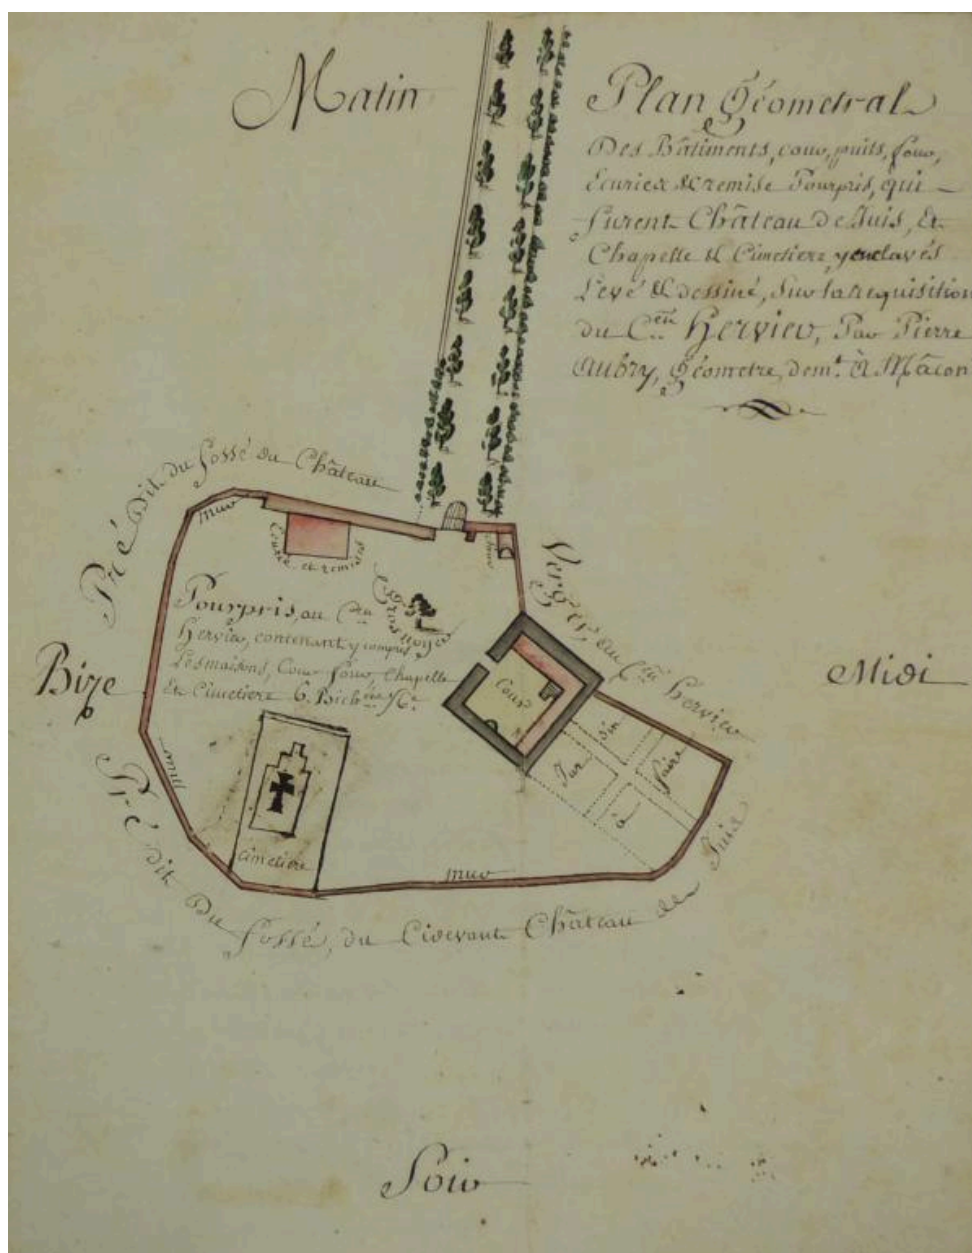 Matin
Plan Géometral
Des Bâtiments, cour, puits, four,
Ecuries & remise Pourpris, qui
furent Château de Juis, Et
Chapelle & Cimetiere, y enclavés
Levé & dessiné, Sur la requisition
du C.en Hervieu, Par Pierre
Aubry, Géometre, dem.t à Mâcon
Pré Dit du fossé du Château
mur
Ecurie et remises
four
Gros noyer
Verger, du C.en Hervieu
Pourpris, au C.en
Hervieu, contenant y compris
Les maisons, Cour, four, Chapelle
Et Cimetiere 6. Bich.
Cour
Bize
Midi
Jar
din
à
faire
mur
Cimetiere
mur
Pré dit Du Fossé, du Cidevant Château de Juis
Soir